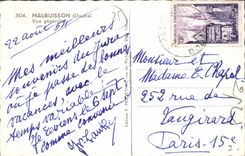 304. MALBUISSON (Doubs)
Vue générale
22 août 54
Mes meilleurs
souvenirs du Jura
où je passe de bonnes
vacances avec le
temps variable
Je reviens le 6 sept
comme convenu
Monsieur et
Madame E. Chapal
252 rue de
Vaugirard
Paris-15e